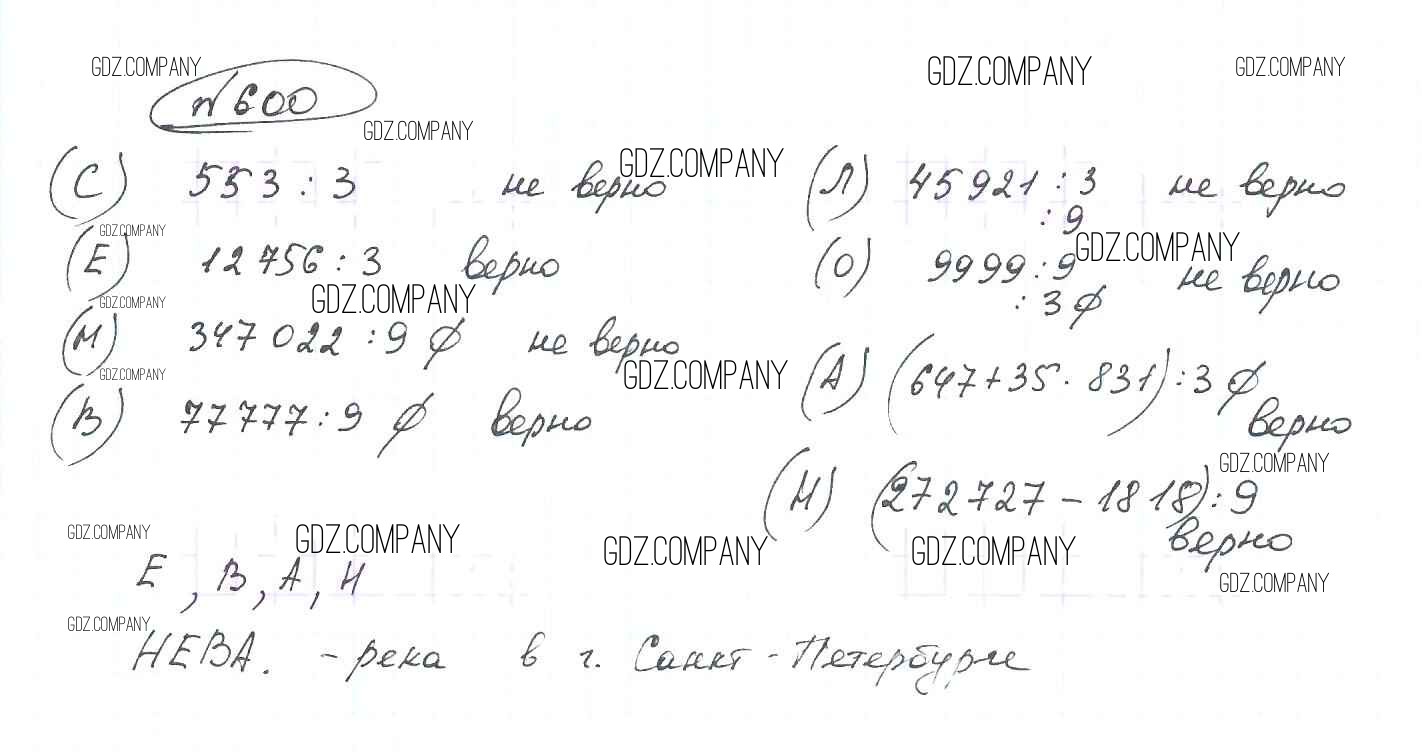 GDZ.COMPANY GDZ.COMPANY GDZ.COMPANY
№600
GDZ.COMPANY
(С) 553 : 3 не верно GDZ.COMPANY
(Л) 45921 : 3 не верно
: 9
GDZ.COMPANY
(Е) 12756 : 3 верно
GDZ.COMPANY
(О) 9999 : 9 не верно
: 3 ∅
GDZ.COMPANY
GDZ.COMPANY
(М) 347022 : 9 ∅ не верно
GDZ.COMPANY
(А) (647+35·831) : 3 ∅
верно
GDZ.COMPANY
(В) 77777 : 9 ∅ верно
GDZ.COMPANY
(Н) (272727 – 1818) : 9
верно
GDZ.COMPANY GDZ.COMPANY GDZ.COMPANY GDZ.COMPANY
Е, В, А, Н
GDZ.COMPANY
GDZ.COMPANY
НЕВА. - река в г. Санкт-Петербурге